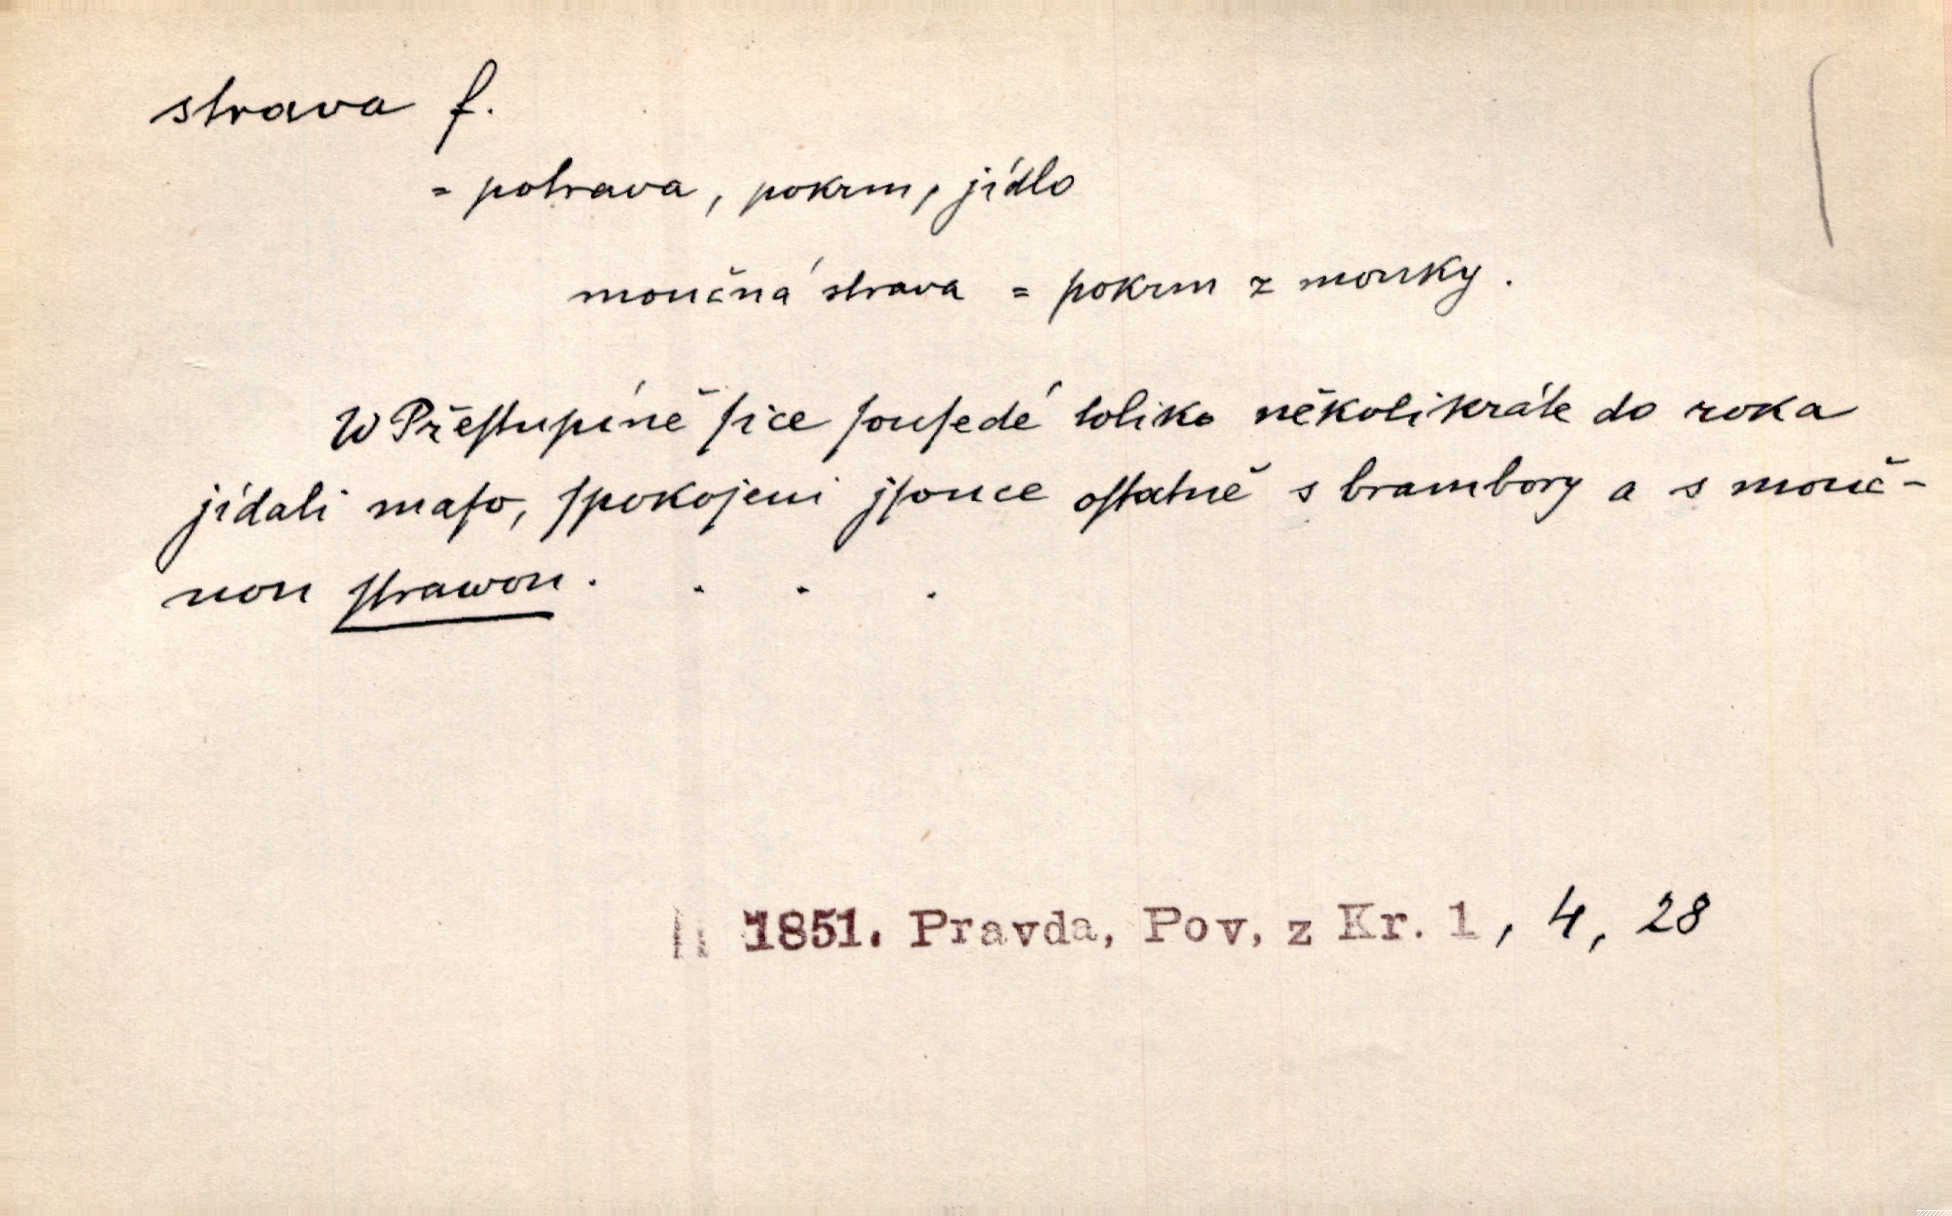 strava f.
= potrava, pokrm, jídlo
moučná strava = pokrm z mouky.
W Přeſtupíně ſice ſouſedé toliko několikráte do roka
jídali maſo, ſpokojeni jſouce oſtatně s brambory a s mouč-
nou ſtrawou. . . .
1851. Pravda, Pov. z Kr. 1, 4, 28